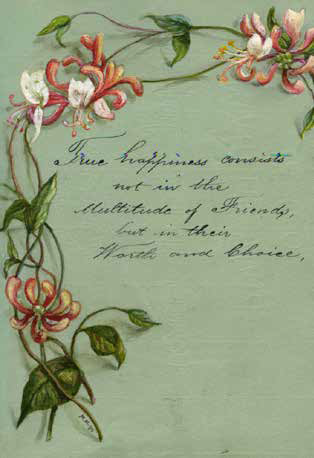 True happiness consists
not in the
Multitude of Friends,
but in their
Worth and Choice,